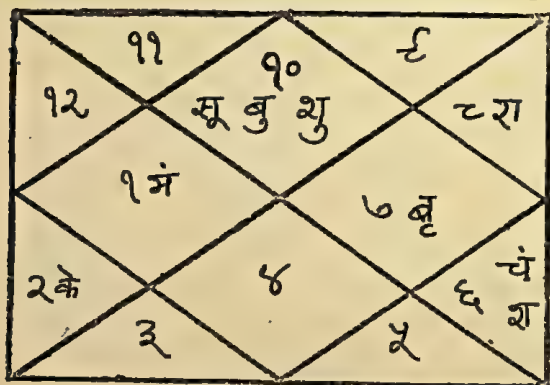 ११
१०
९
१२
सू बु शु
८ रा
१ मं
७ बृ
२ के
४
६ चं श
३
५